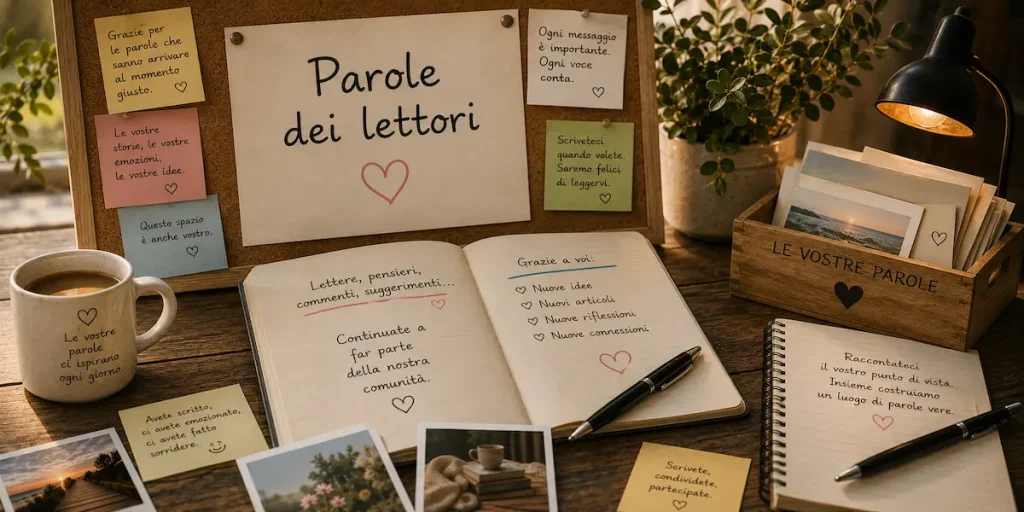 Grazie per
le parole che
sanno arrivare
al momento
giusto.
Le vostre
storie, le vostre
emozioni,
le vostre idee.
Questo spazio
è anche vostro.
Parole
dei lettori
Ogni messaggio
è importante.
Ogni voce
conta.
Scriveteci
quando volete.
Saremo felici
di leggervi.
LE VOSTRE PAROLE
Le vostre
parole
ci ispirano
ogni giorno
Lettere, pensieri,
commenti, suggerimenti...
Continuate a
far parte
della nostra
comunità.
Grazie a voi:
Nuove idee
Nuovi articoli
Nuove riflessioni
Nuove connessioni
Raccontateci
il vostro punto di vista.
Insieme costruiamo
un luogo di parole vere.
Avete scritto,
ci avete emozionato,
ci avete fatto
sorridere.
Scrivete,
condividete,
partecipate.